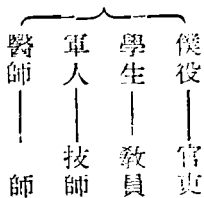 僕役——官吏
學生——敎員
軍人——技師
醫師——師